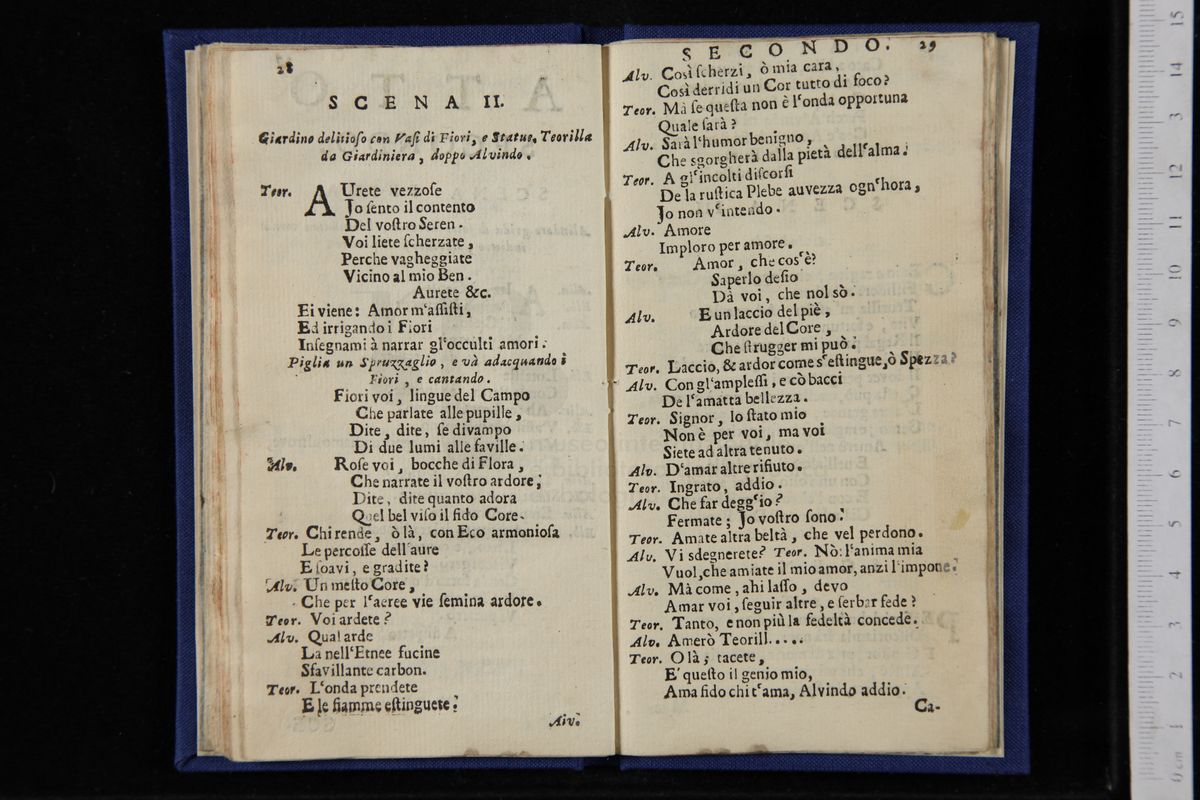 28
SCENA II.
Giardino delitioso con Vasi di Fiori, e Statue. Teorilla
da Giardiniera, doppo Alvindo.
Teor. AUrete vezzose
Jo sento il contento
Del vostro Seren.
Voi liete scherzate,
Perche vagheggiate
Vicino al mio Ben.
Aurete &c.
Ei viene: Amor m'assisti,
Ed irrigando i Fiori
Insegnami à narrar gl'occulti amori.
Piglia un Spruzzaglio, e và adacquando i
Fiori, e cantando.
Fiori voi, lingue del Campo
Che parlate alle pupille,
Dite, dite, se divampo
Di due lumi alle faville.
Alv. Rose voi, bocche di Flora,
Che narrate il vostro ardore;
Dite, dite quanto adora
Quel bel viso il fido Core.
Teor. Chi rende, ò là, con Eco armoniosa
Le percosse dell'aure
E soavi, e gradite?
Alv. Un mesto Core,
Che per l'aeree vie semina ardore.
Teor. Voi ardete?
Alv. Qual arde
La nell'Etnee fucine
Sfavillante carbon.
Teor. L'onda prendete
E le fiamme estinguete.
Alv.
SECONDO. 29
Alv. Così scherzi, ò mia cara,
Così derridi un Cor tutto di foco?
Teor. Mà se questa non è l'onda opportuna
Quale sarà?
Alv. Sarà l'humor benigno,
Che sgorgherà dalla pietà dell'alma.
Teor. A gl'incolti discorsi
De la rustica Plebe auvezza ogn'hora,
Jo non v'intendo.
Alv. Amore
Imploro per amore.
Teor. Amor, che cos'è?
Saperlo desio
Dà voi, che nol sò.
Alv. E un laccio del piè,
Ardore del Core,
Che strugger mi può.
Teor. Laccio, & ardor come s'estingue, ò Spezza?
Alv. Con gl'amplessi, e cò bacci
De l'amatta bellezza.
Teor. Signor, lo stato mio
Non è per voi, ma voi
Siete ad altra tenuto.
Alv. D'amar altre rifiuto.
Teor. Ingrato, addio.
Alv. Che far degg'io?
Fermate; Jo vostro sono.
Teor. Amate altra beltà, che vel perdono.
Alv. Vi sdegnerete? Teor. Nò: l'anima mia
Vuol, che amiate il mio amor, anzi l'impone.
Alv. Mà come, ahi lasso, devo
Amar voi, seguir altre, e serbar fede?
Teor. Tanto, e non più la fedeltà concede.
Alv. Amerò Teorill.....
Teor. O là; tacete,
E' questo il genio mio,
Ama fido chi t'ama, Alvindo addio.
Ca-